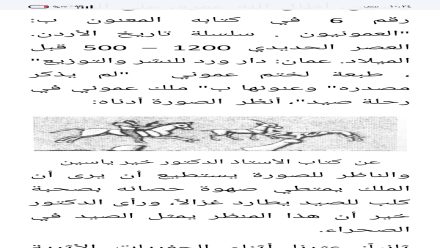 ١٠:٢٤
رقم 6 في كتابه المعنون ب:
"العمونيون . سلسلة تاريخ الأردن.
العصر الحديدي 1200 – 500 قبل
الميلاد. عمان: دار ورد للنشر والتوزيع"
. طبعة لختم عموني "لم يذكر
مصدره" وعنونها ب" ملك عموني في
رحلة صيد". أنظر الصورة أدناه:
عن كتاب الأستاذ الدكتور خير ياسين
والناظر للصورة يستطيع أن يرى أن
الملك يمتطي صهوة حصانه بصحبة
كلب للصيد يطارد غزالاً. ورأى الدكتور
خير أن هذا المنظر يمثل الصيد في
الصحراء.